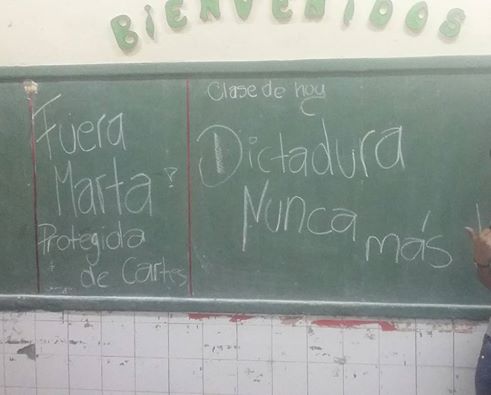 BIENVENIDOS
Fuera
Marta?
Protegida
de Cartes
Clase de hoy
Dictadura
Nunca
más